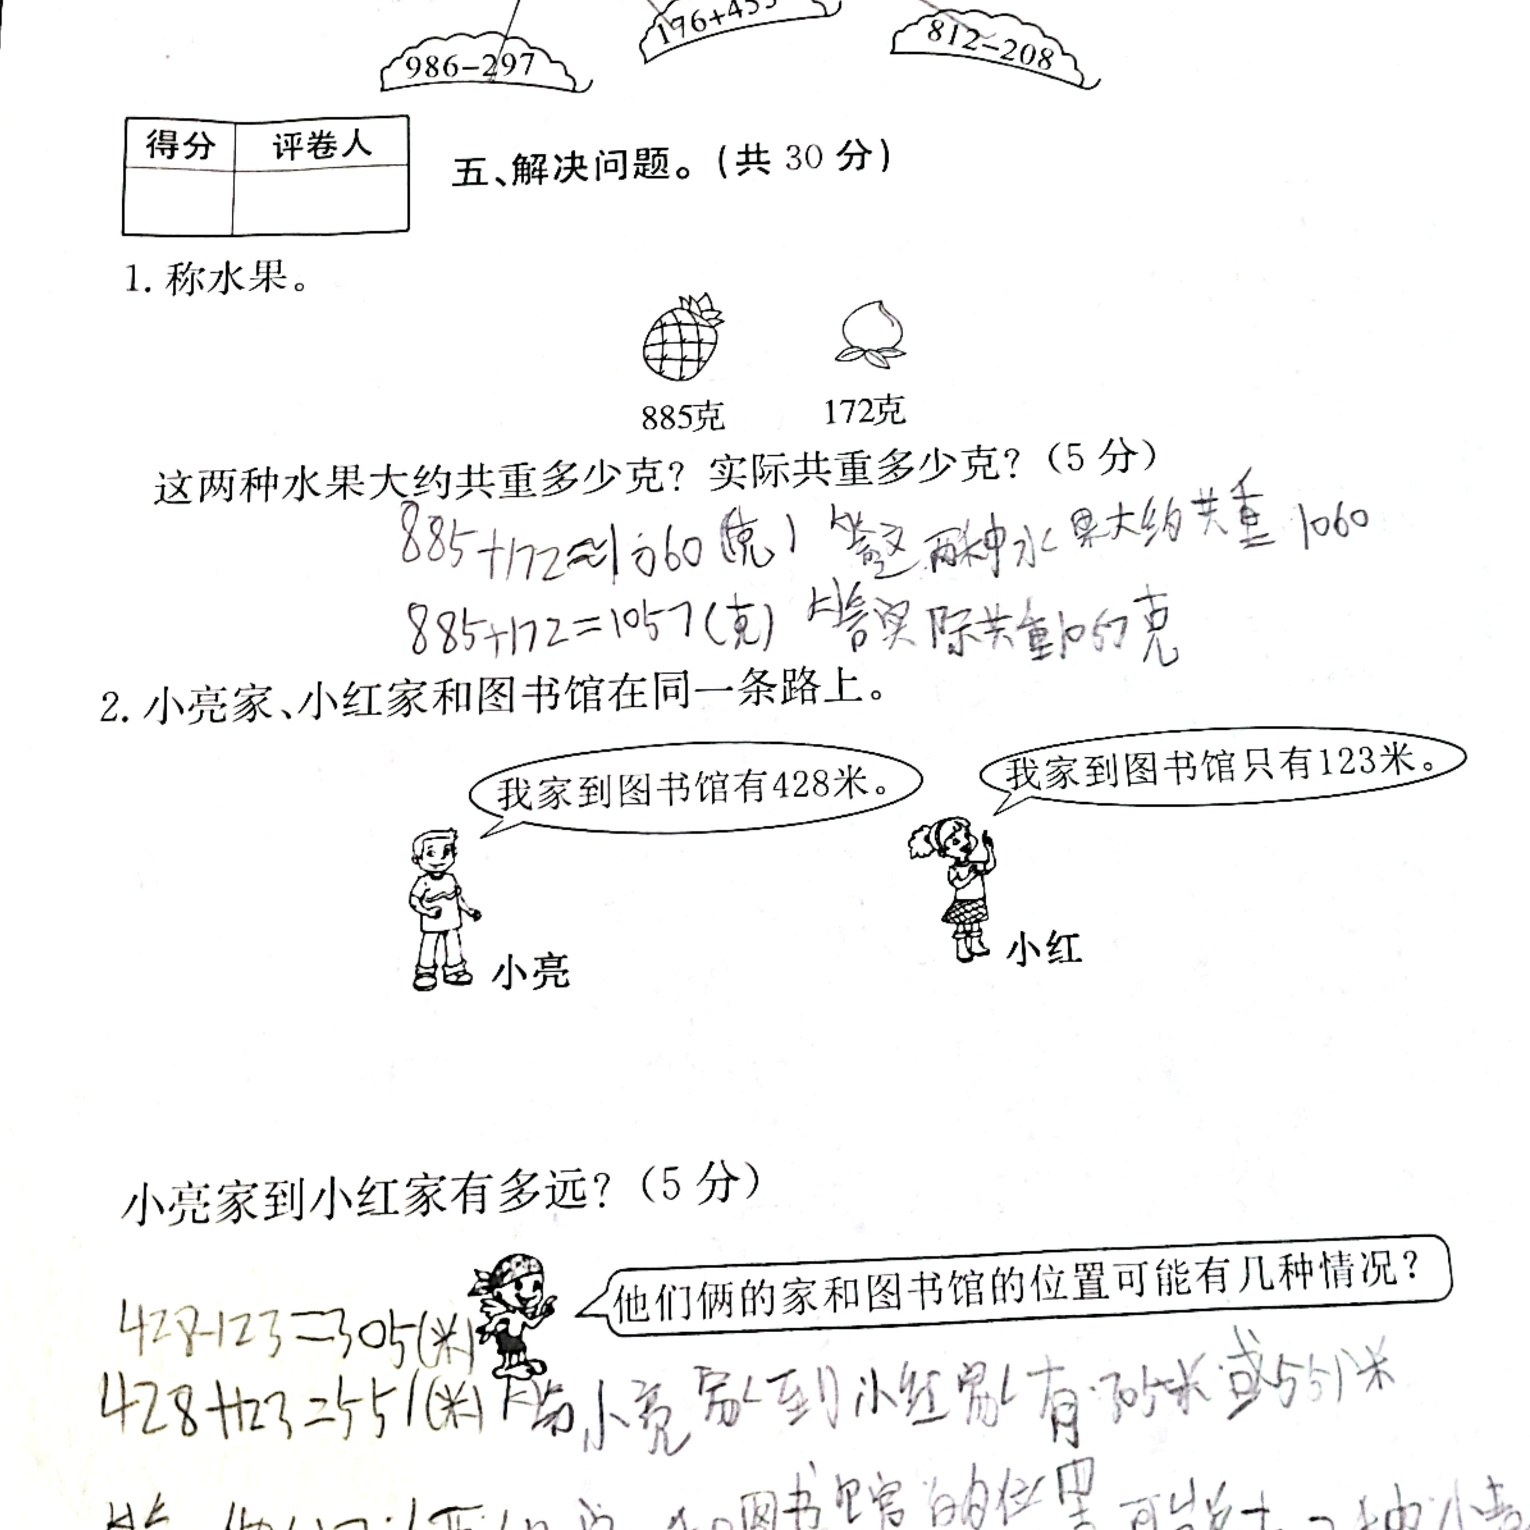 986-297
176+455
812-208
得分 评卷人
五、解决问题。(共 30 分)
1. 称水果。
885克 172克
这两种水果大约共重多少克？实际共重多少克？(5 分)
885+172≈1060(克) 答这两种水果大约共重 1060
885+172=1057(克) 答实际共重1057克
2. 小亮家、小红家和图书馆在同一条路上。
我家到图书馆有428米。
我家到图书馆只有123米。
小亮
小红
小亮家到小红家有多远？(5 分)
他们俩的家和图书馆的位置可能有几种情况？
428-123=305(米)
428+123=551(米) 答小亮家到小红家有305米或551米
和图书馆的位置可能